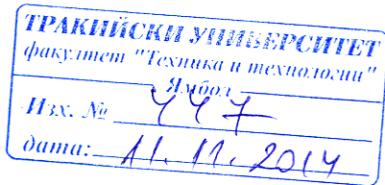 ТРАКИЙСКИ УНИВЕРСИТЕТ
факултет "Техника и технологии"
Ямбол
Изх. № 447
дата: 11.11.2014